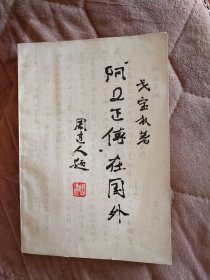 戈宝权著
“阿Q正传”在国外
周建人题